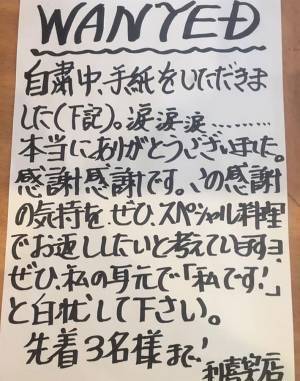 WANYED
自粛中、手紙をいただきま
した(下記)。涙涙涙………
本当にありがとうございました。
感謝感謝です。この感謝
の気持を、ぜひ、スペシャル料理
でお返ししたいと考えていますヨ
ぜひ、私の耳元で「私です!」
と白状して下さい。
先着3名様まで!